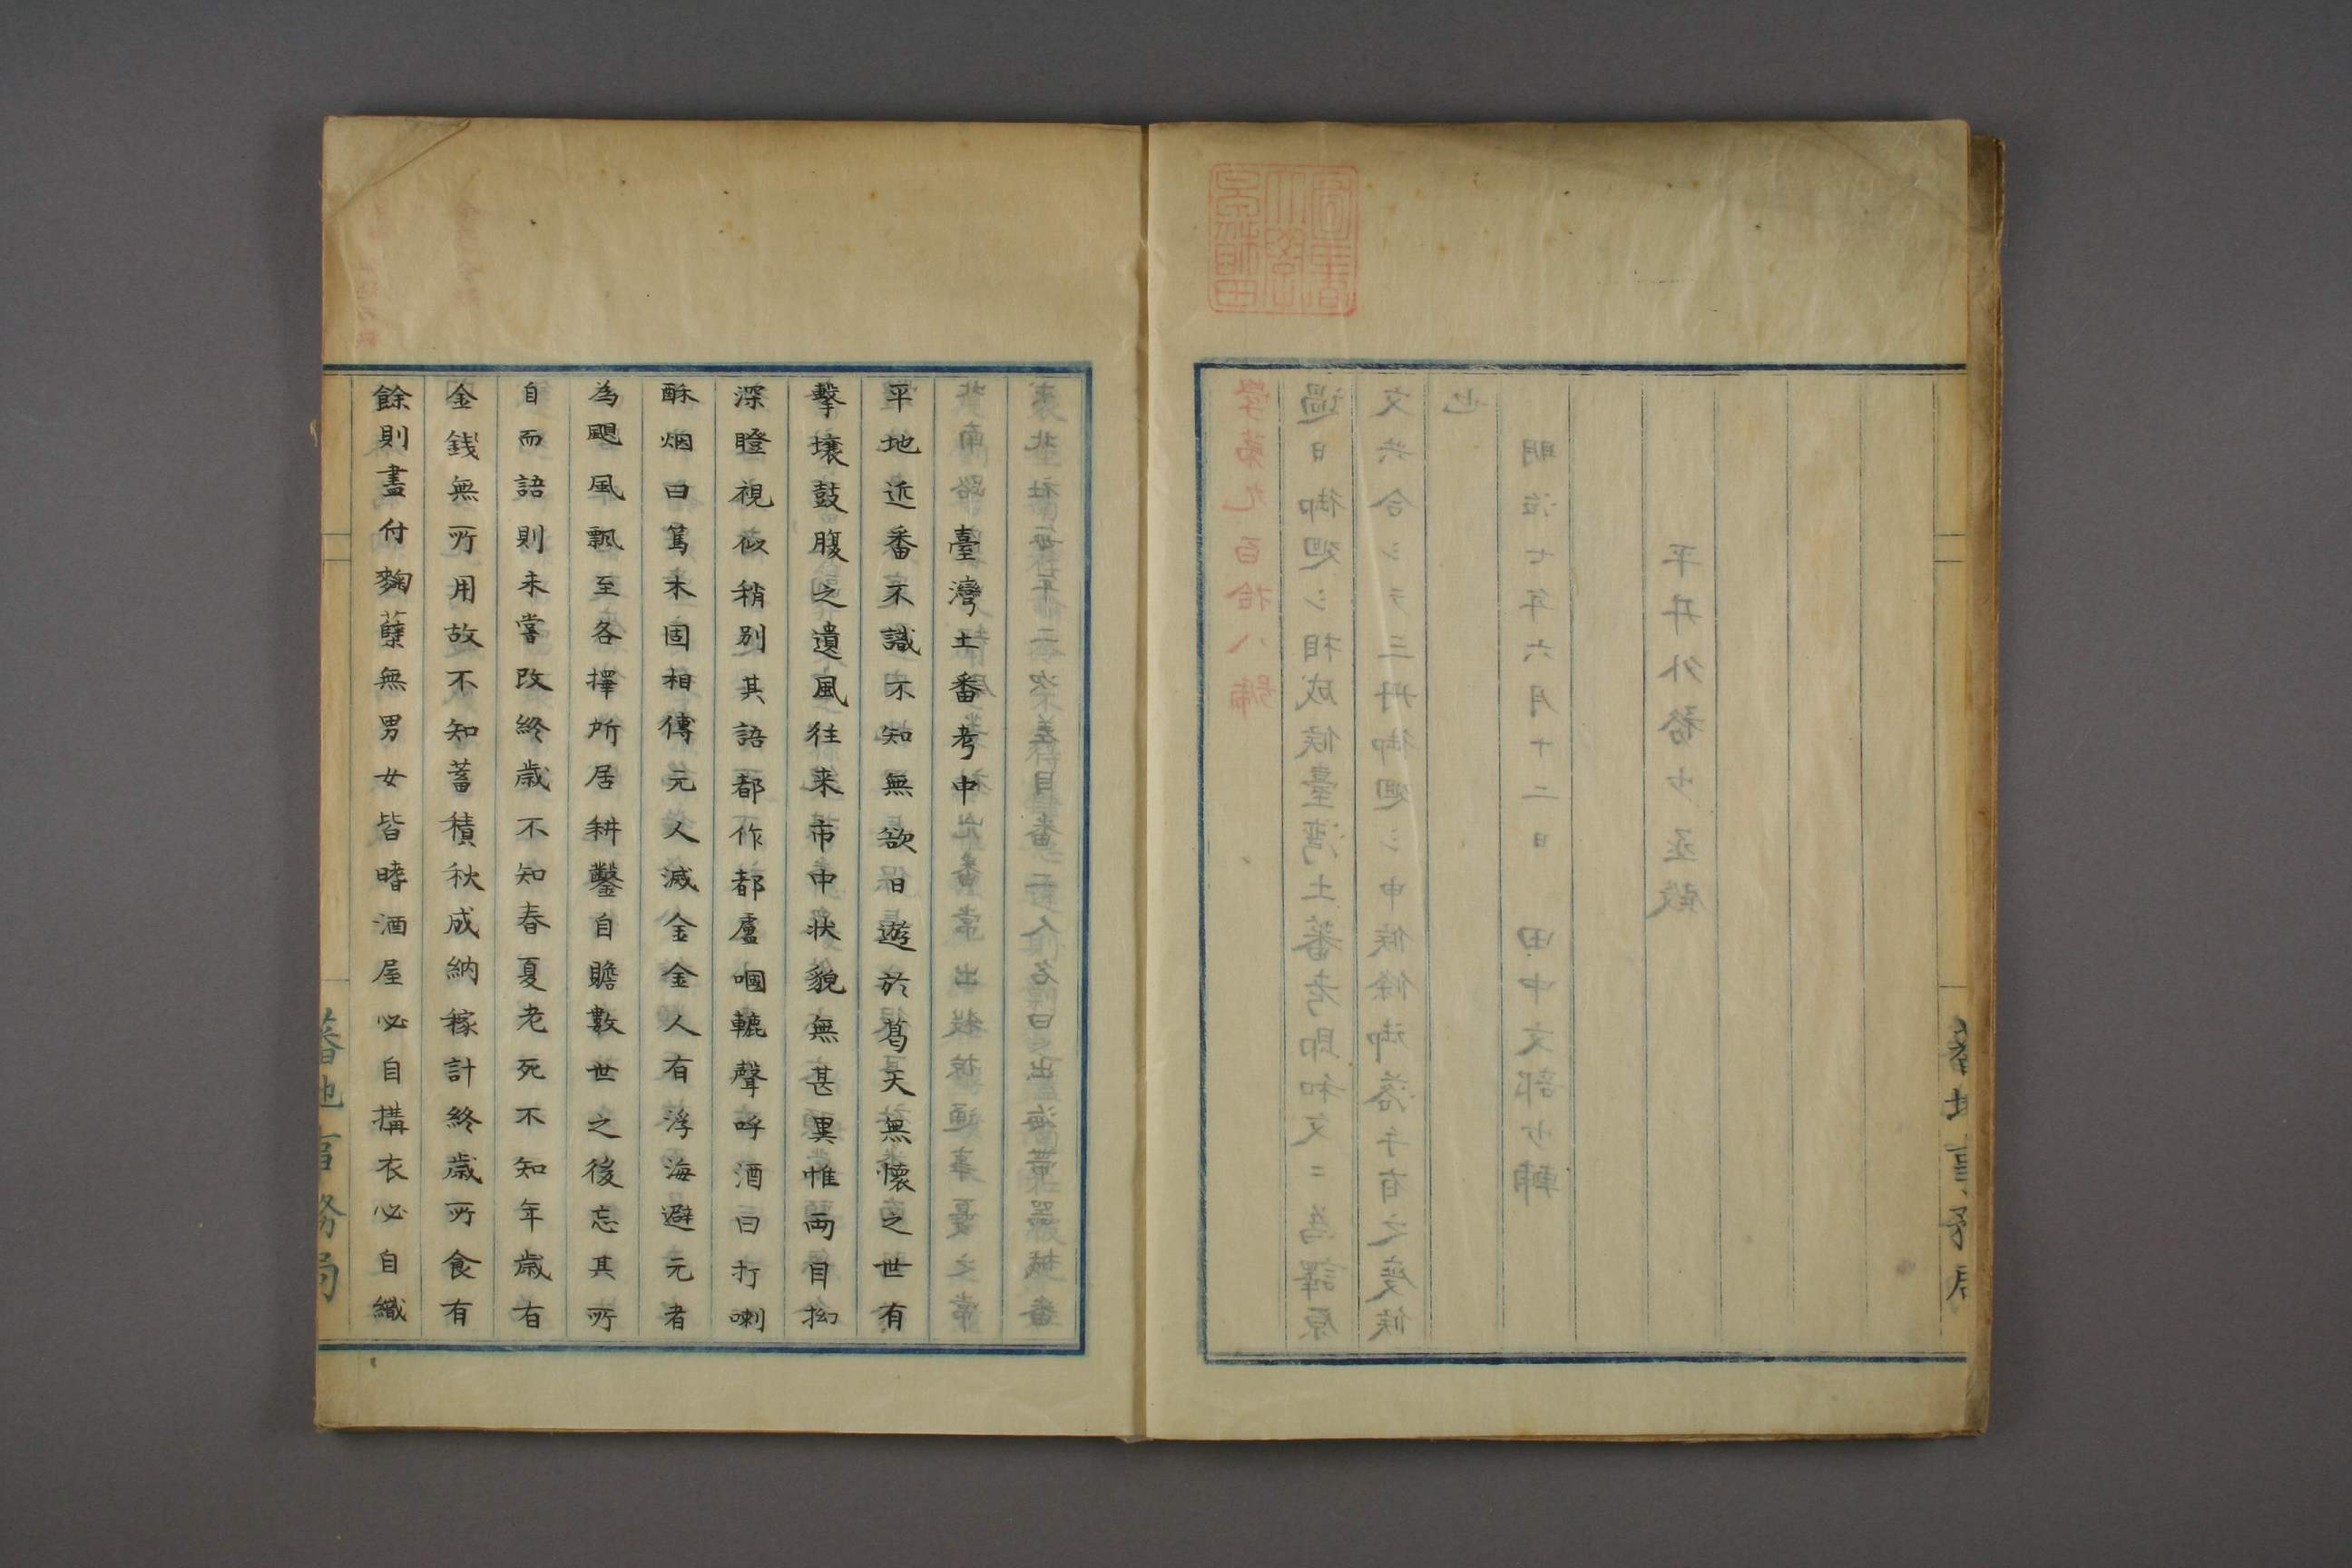 學第九百拾八號
過日御廻シ相成候臺湾土蕃考即和文ニ為譯原
文共合シテ三冊御廻シ申候條御落手有之度候
也
明治七年六月十二日 田中文部少輔
平井外務少丞殿
臺灣土番考中
平地近番不識不知無欲日遊於葛天無懷之世有
擊壤鼓腹之遺風往来市中状貌無甚異惟両目拗
深瞪視似稍別其語都作都盧嘓轆聲呼酒曰打喇
酥烟曰篤木固相傳元人滅金金人有浮海避元者
為颶風飄至各擇所居耕鑿自贍數世之後忘其所
自而語則未嘗改終歳不知春夏老死不知年歳右
金錢無所用故不知蓄積秋成納稼計終歳所食有
餘則盡付麴蘖無男女皆嗜酒屋必自搆衣必自織
蕃地事務局